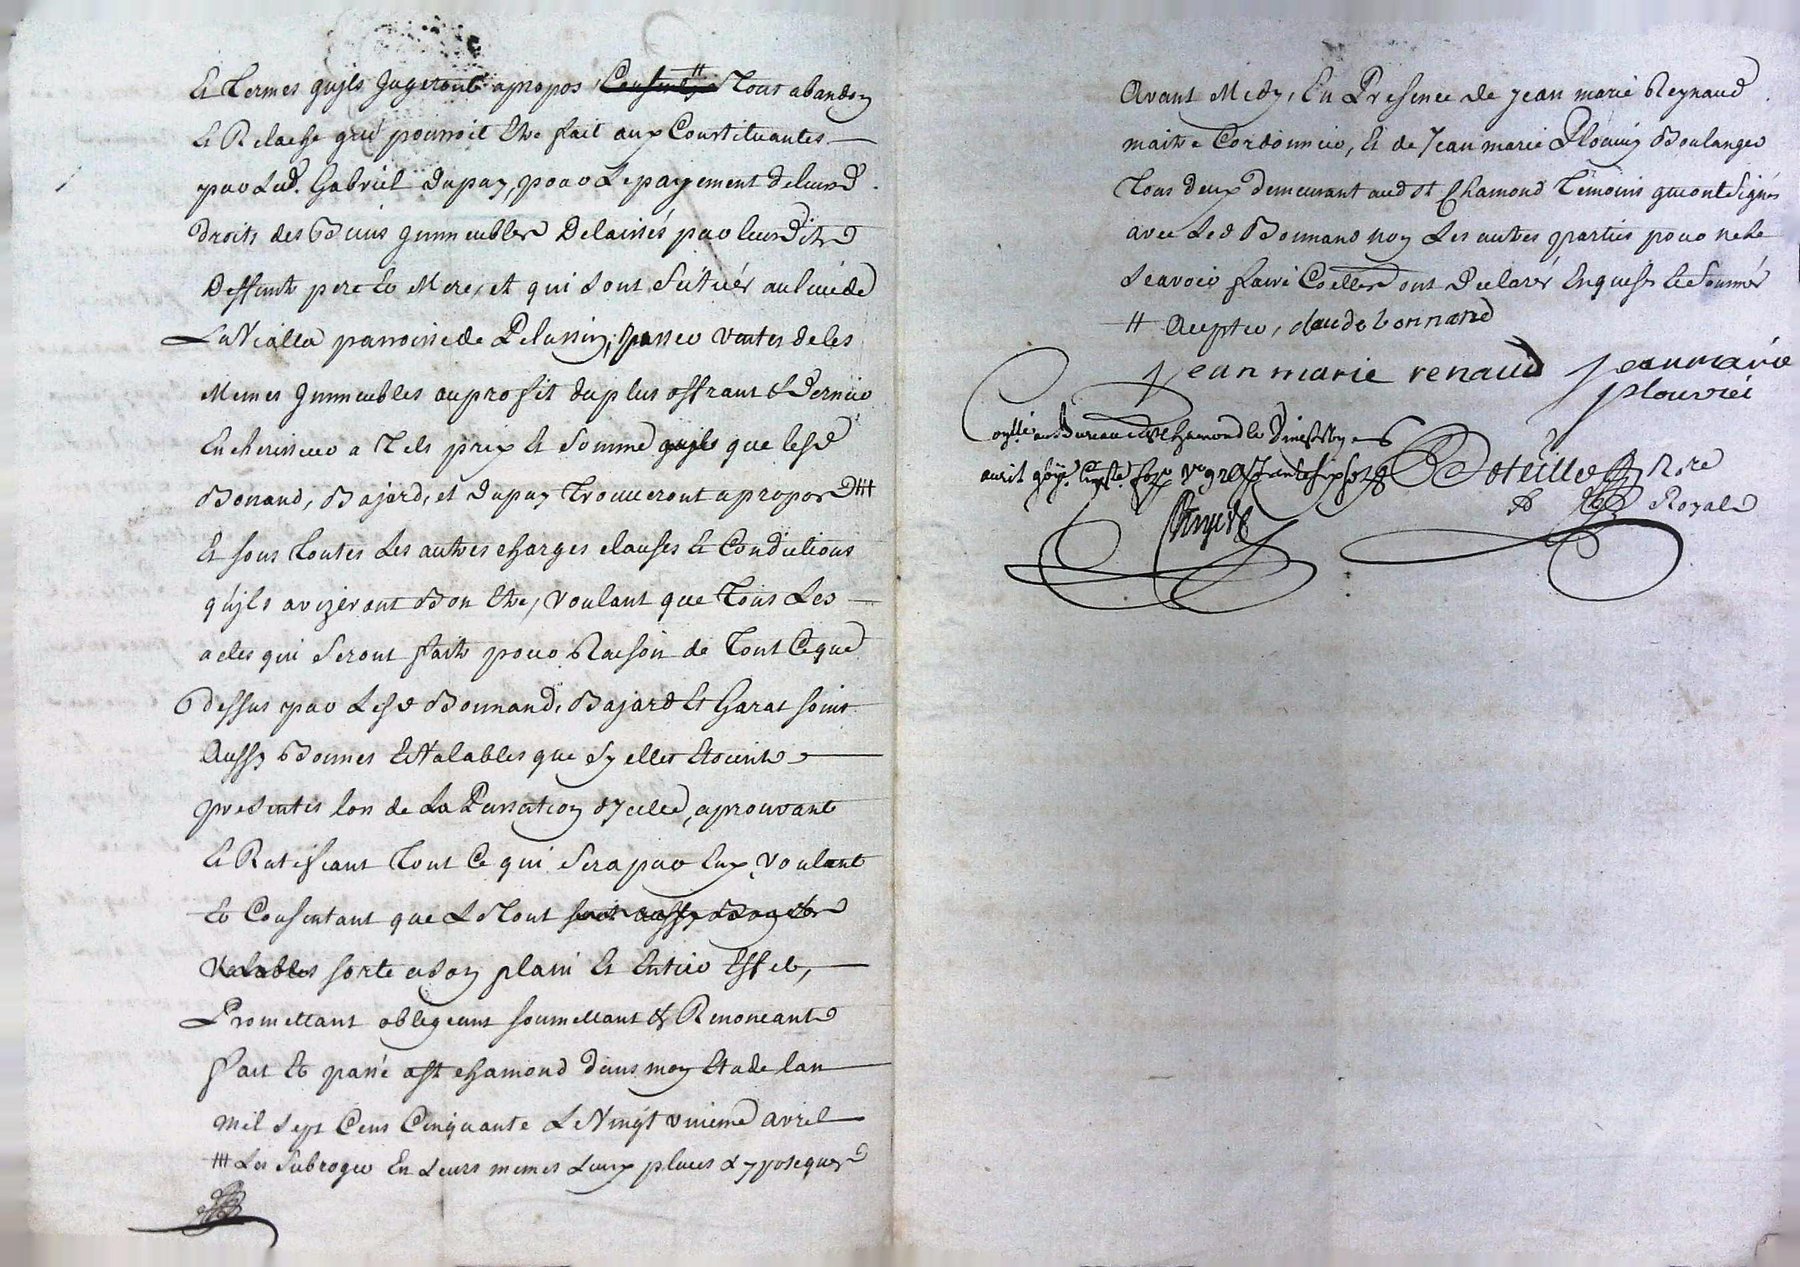 Et Termes quijls Jugeront apropos Consentije # Tout abandon
Et Relache qui pourroit Etre fait aux Constituantes
par Led. Gabriel Dupuy, pour Le payement de leurs
droits des Biens Immeubles Delaissés par leursdits
Deffunts pere Et Mere, et qui sont Situés au Lieu de
La Vialla parroisse de Pelussin, passer ventes de les
Memes Immeubles au profit du plus offrant & Dernier
Encherisseur a Tels prix Et Somme quijls que lesd
Bonand, Bajard, et Dupuy Trouveront apropos #
Et sous Toutes Les autres charges clauses Et Conditions
quijls avizeront Bon Etre, voulant que Tous Les
actes qui Seront faits pour Raison de Tout Ceque
dessus par Lesd Bonnand, Bajard Et Garat soint
Aussy Bonnes Et Valables que sy elles Etoints
presentes lors de La Passation d'jcelles, aprouvant
Et Ratifiant Tout Ce qui Sera par Eux, voulant
Et Consentant que Le Tout soit aussy Bon Et
Valables sorte a son plain Et Entier Effet,
Promettant obligeant soumettant & Renoncant
fait Et passé a St chamond dans mon Etude lan
mil Sept Cens Cinquante Le Vingt unieme avril
# Les Subroger En Leurs memes Lieux places & ypoteques
Avant Midy, En Presence de jean marie Reynaud
maitre Cordonnier, Et de Jean marie Plouvier Boulanger
Tous deux demeurant aud St Chamond Témoins qui ont Signés
avec Led Bonnand non Les autres parties pour ne Le
Scavoir faire Et elles ont Declaré Enquises Et Sommés
# Accepter, claude bonnand
jean marie renaud jean marie
plouvier
au Bureau de St chamond le
avril
Royal